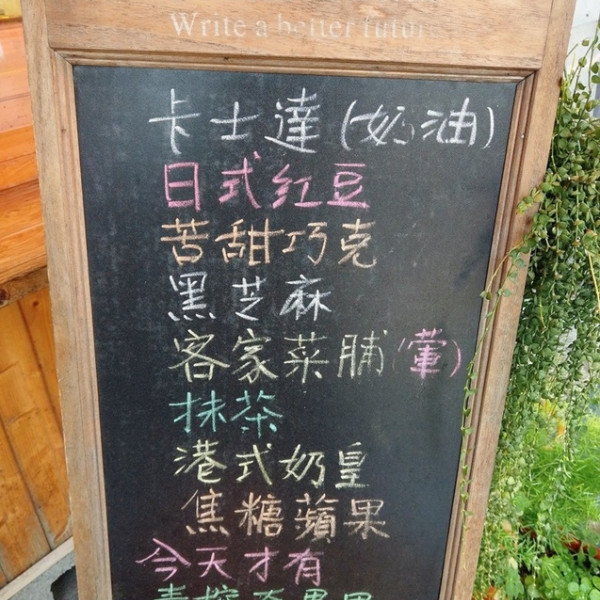 Write a better future
卡士達(奶油)
日式紅豆
苦甜巧克
黑芝麻
客家菜脯(葷)
抹茶
港式奶皇
焦糖蘋果
今天才有